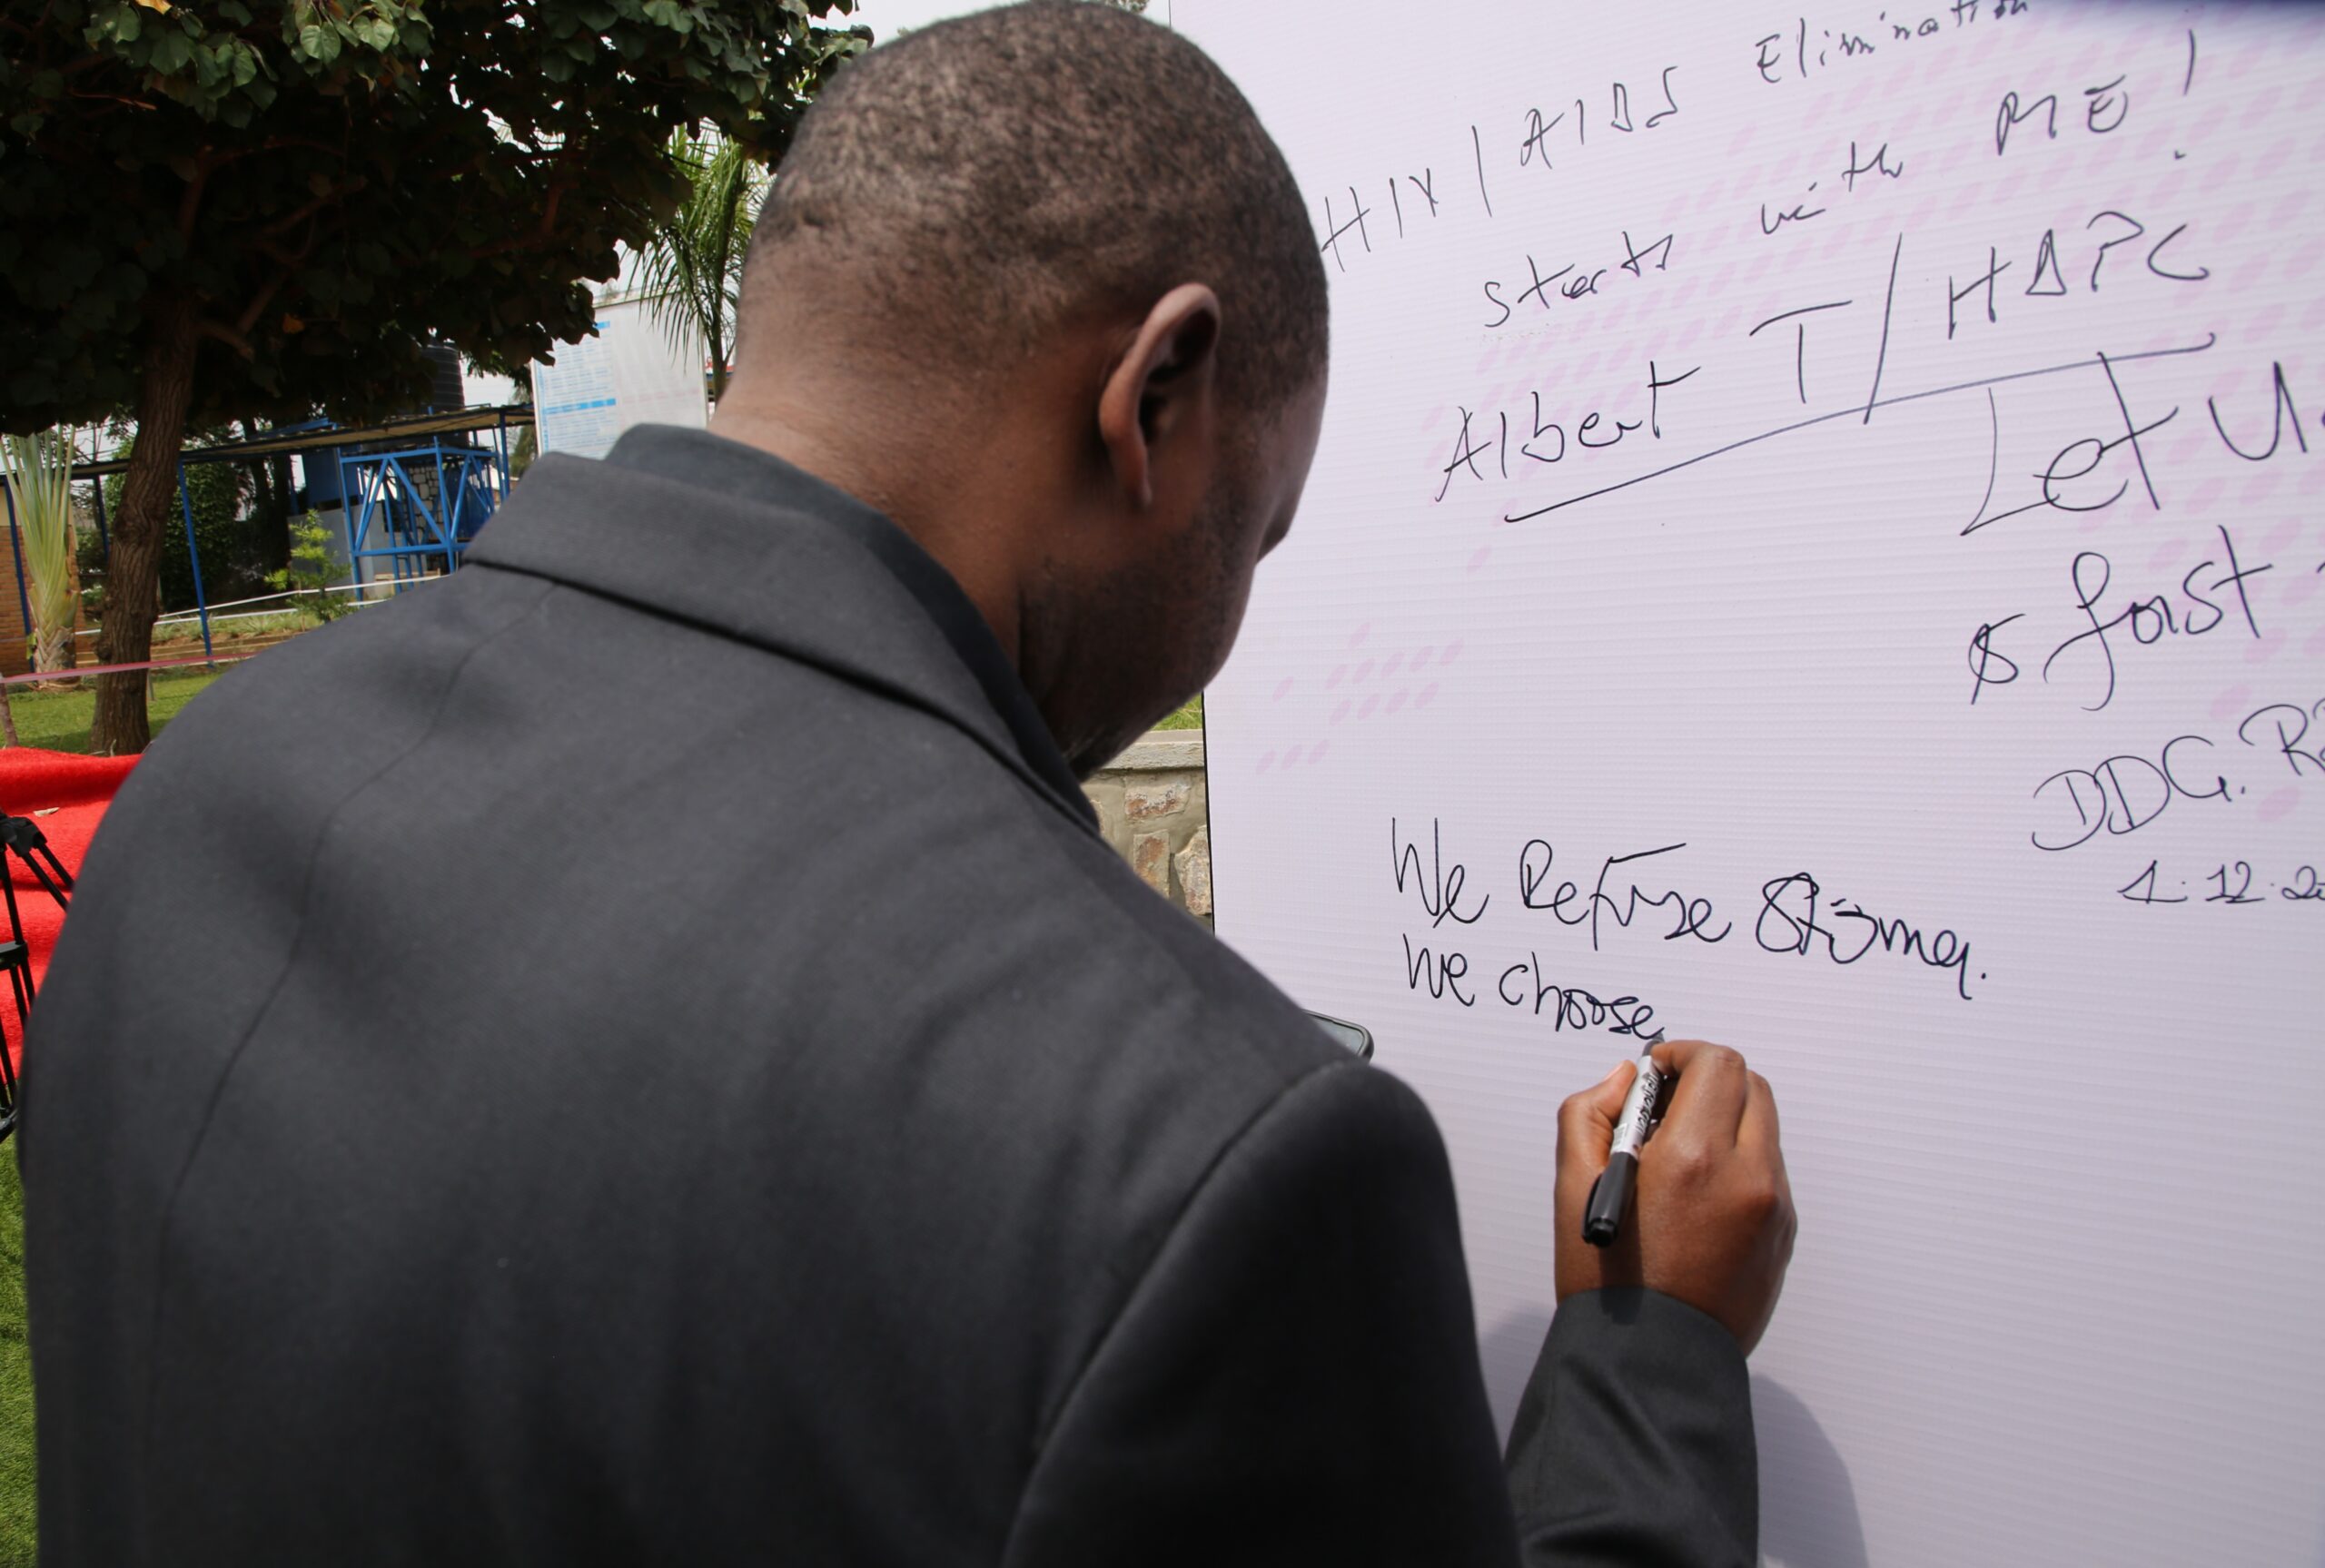 HIV/AIDS Elimination
starts with ME!
Albert T/HDPC
Let us
& fast
DDG. RB
1.12.20
We Refuse Stigma.
We choose